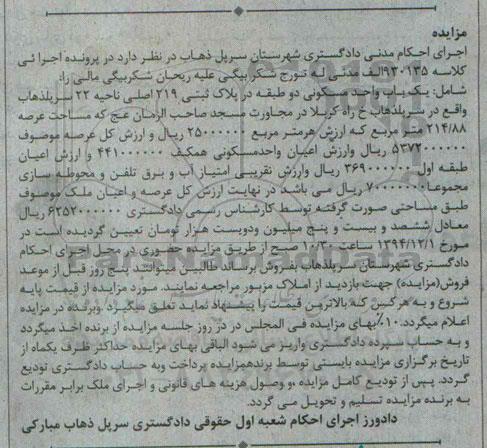 مزایده
اجرای احکام مدنی دادگستری شهرستان سرپل ذهاب در نظر دارد در پرونده اجرائی
کلاسه ۹۳۰۱۳۵الف مدنی له تورج شکربیگی علیه ریحان شکربیگی مالی را:
شامل: یک باب واحد مسکونی دو طبقه در پلاک ثبتی ۲۱۹ اصلی ناحیه ۲۲ سرپلذهاب
واقع در سرپلذهاب خ راه کربلا در مجاورت مسجد صاحب الزمان عج که مساحت عرصه
۲۱۴/۸۸ متر مربع که ارزش هرمتر مربع ۲۵۰۰۰۰۰۰ ریال و ارزش کل عرصه موصوف
۵۳۷۲۰۰۰۰۰۰ ریال وارزش اعیان واحدمسکونی همکف ۴۴۱۰۰۰۰۰۰ و ارزش اعیان
طبقه اول ۳۶۹۰۰۰۰۰۰ ریال وارزش تقریبی امتیاز آب و برق تلفن و محوطه سازی
مجموعا۷۰۰۰۰۰۰۰ ریال می باشد در نهایت ارزش کل عرصه و اعیان ملک موصوف
طبق مساحتی صورت گرفته توسط کارشناس رسمی دادگستری ۶۲۵۲۰۰۰۰۰۰ ریال
معادل ششصد و بیست و پنج میلیون ودویست هزار تومان تعیین گردیده است در
مورخ ۱۳۹۴/۱۲/۱ ساعت ۱۰/۳۰ صبح از طریق مزایده حضوری در محل اجرای احکام
دادگستری شهرستان سرپلذهاب بفروش برساند طالبین میتوانند پنج روز قبل از موعد
فروش(مزایده) جهت بازدید از املاک مزبور مراجعه نمایند. مورد مزایده از قیمت پایه
شروع و به هرکس که بالاترین قیمت را پیشنهاد نماید تعلق میگیرد وبرنده در مزایده
اعلام میگردد.۱۰٪بهای مزایده فی المجلس در در روز جلسه مزایده از برنده اخذ میگردد
و به حساب سپرده دادگستری واریز می شود الباقی بهای مزایده حداکثر ظرف یکماه از
تاریخ برگزاری مزایده بایستی توسط برندهمزایده پرداخت وبه حساب دادگستری تودیع
گردد. پس از تودیع کامل مزایده ،و وصول هزینه های قانونی و اجرای ملک برابر مقررات
به برنده مزایده تسلیم و تحویل می گردد.
دادورز اجرای احکام شعبه اول حقوقی دادگستری سرپل ذهاب مبارکی